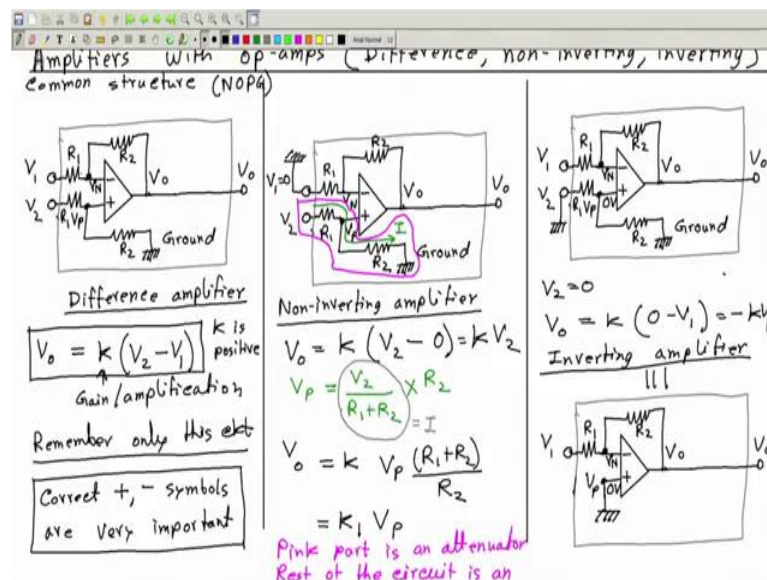 Amplifiers with op-amps (Difference, non-inverting, inverting)
common structure (NOPG)
R2
R1
V1
VN
V2
R1 Vp
Vo
Vo
R2
Ground
Difference amplifier
Vo = k (V2 - V1)
k is positive
Gain/amplification
Remember only this ckt
Correct +, - symbols
are very important
R2
V1=0
R1
VN
V2
R1
Vp
I
Vo
Vo
R2
Ground
Non-inverting amplifier
Vo = k (V2 - 0) = kV2
Vp = V2 / (R1+R2) × R2
= I
Vo = k Vp (R1+R2) / R2
= k1 Vp
Pink part is an attenuator
Rest of the circuit is an
R2
R1
V1
VN
V2
R1 Vp
0V
Vo
Vo
R2
Ground
V2=0
Vo = k (0-V1) = -kV1
Inverting amplifier
|||
R2
R1
V1
VN
Vp
0V
Vo
Vo